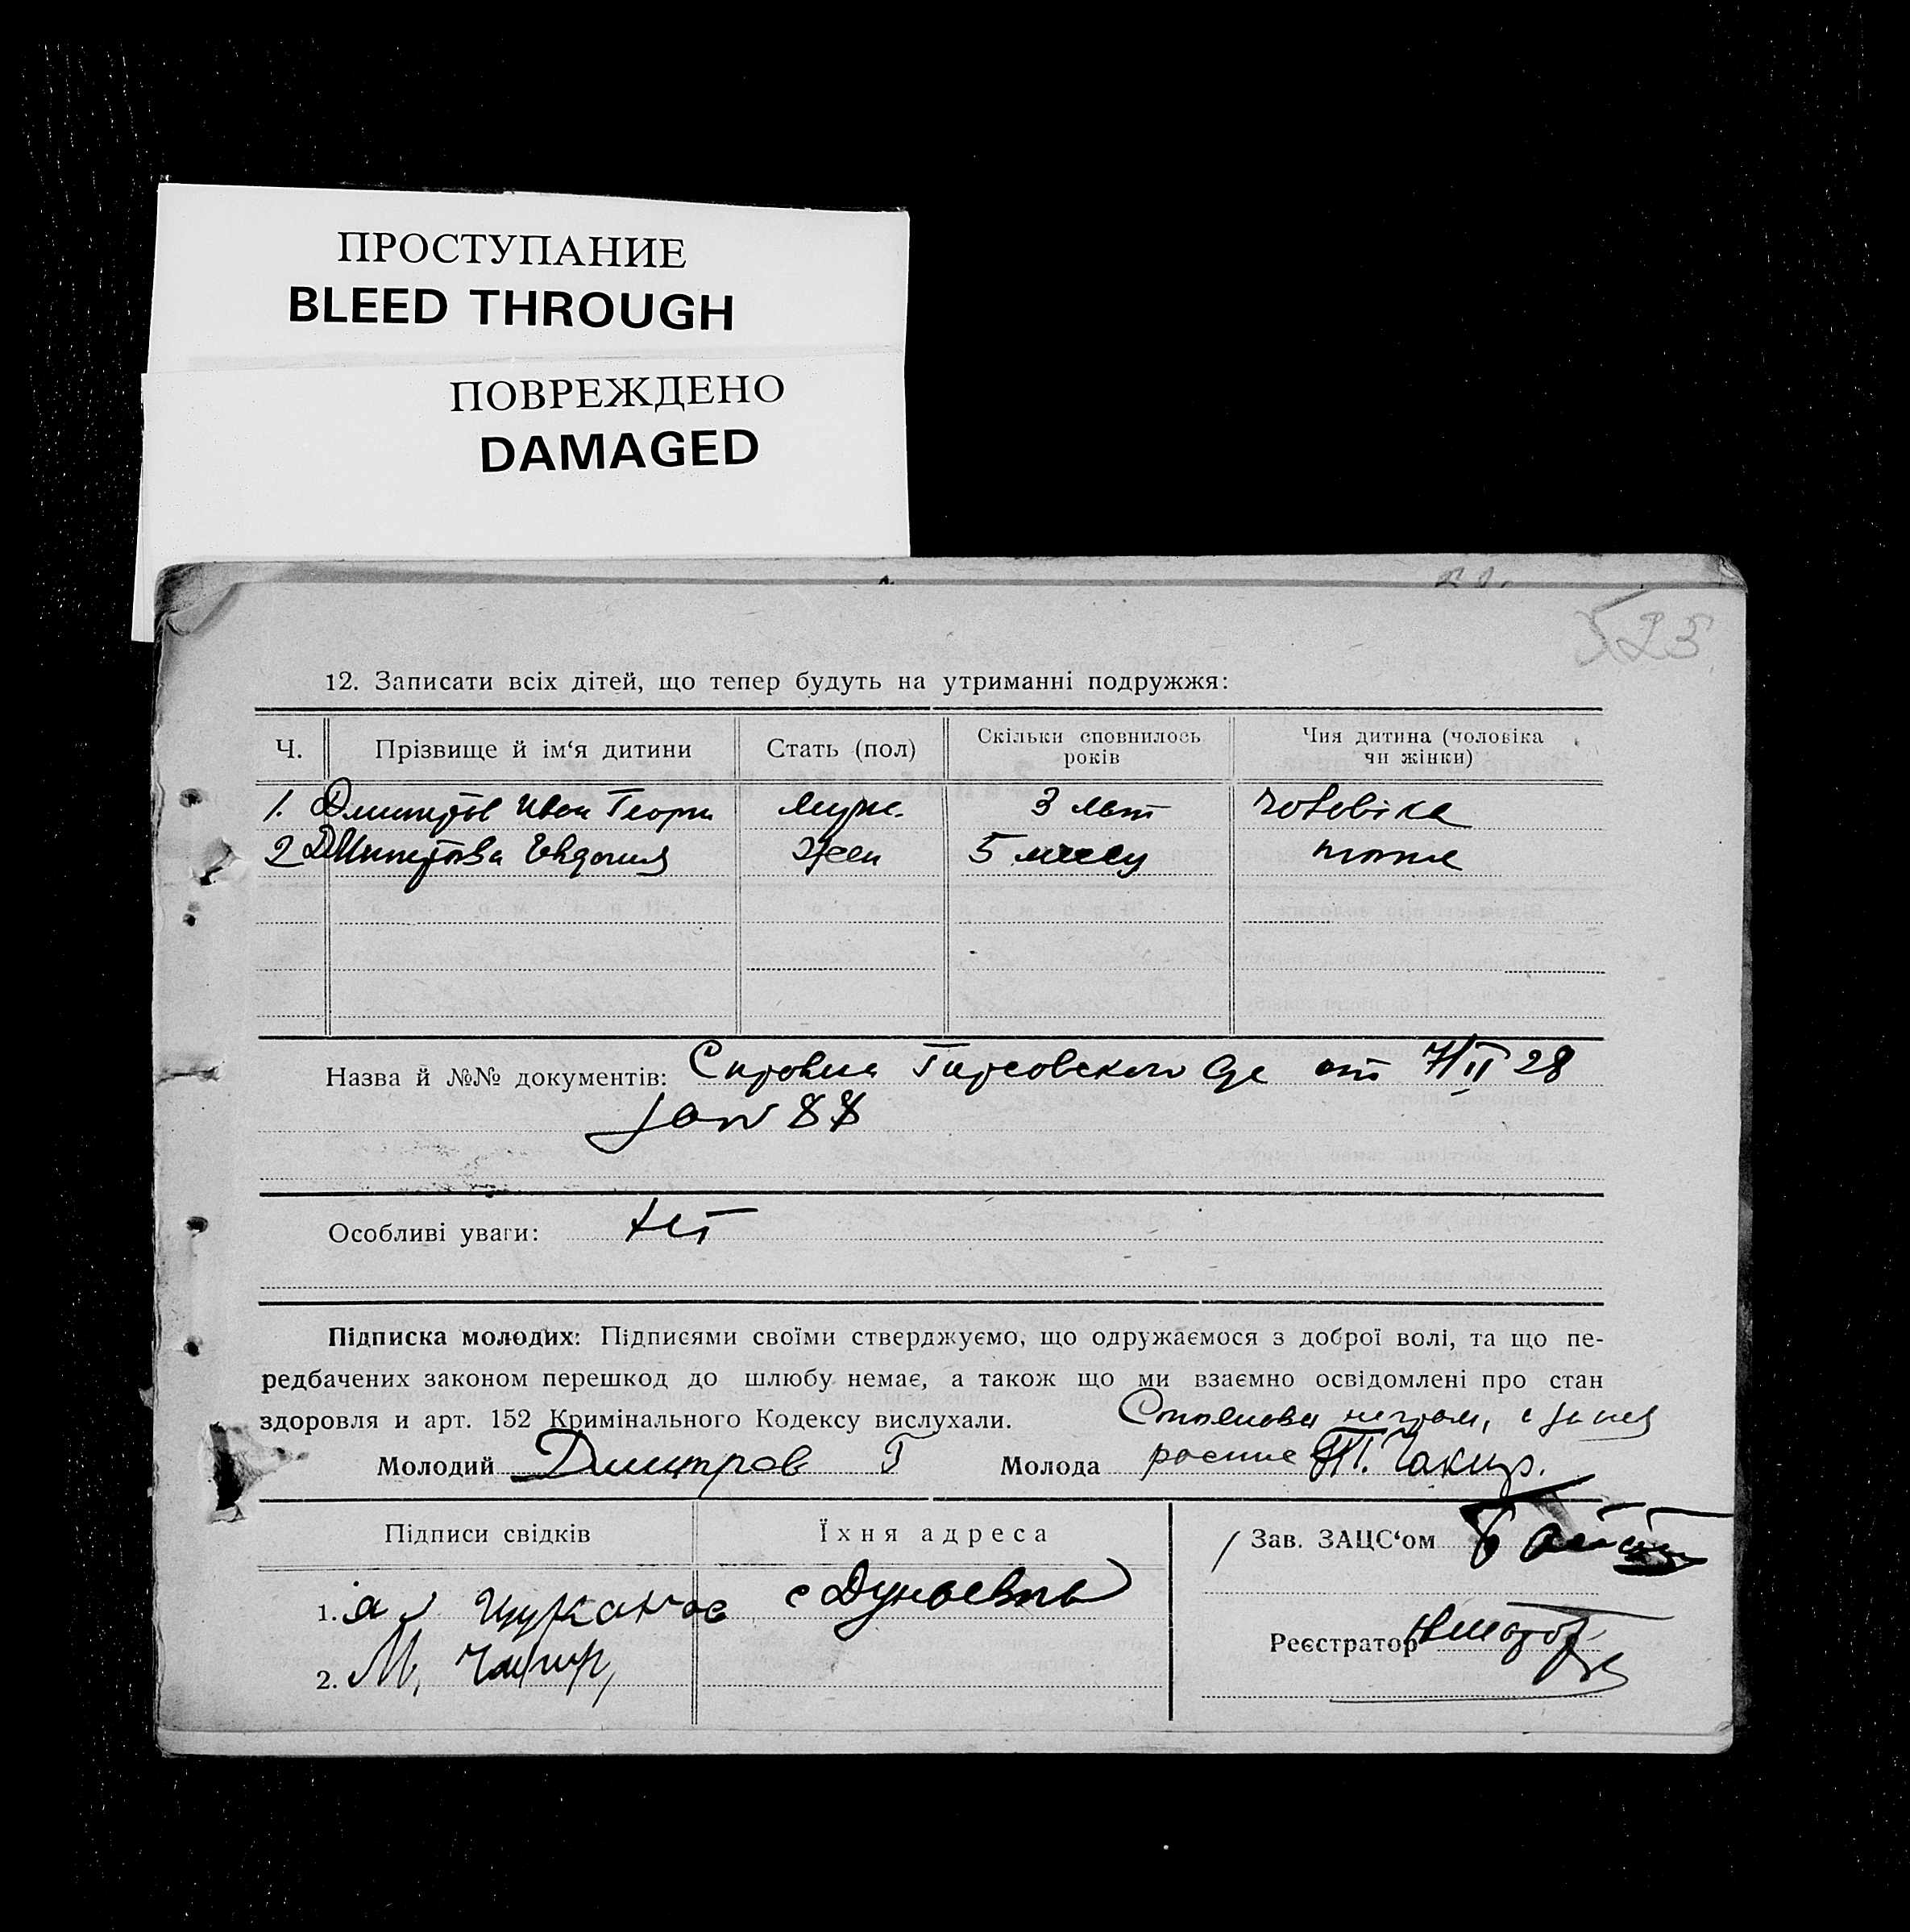 ПРОСТУПАНИЕ
BLEED THROUGH
ПОВРЕЖДЕНО
DAMAGED
523
12. Записати всіх дітей, що тепер будуть на утриманні подружжя:
Ч. Прізвище й ім‘я дитини Стать (пол) Скільки сповнилось років Чия дитина (чоловіка чи жінки)
1. Дмитров Иван Георги муж. 3 лет чоловіка
2 Дмитрова Евдокия жен 5 месяц тоже
Назва й №№ документів: от 7/II 28
88
Особливі уваги: нет
Підписка молодих: Підписями своїми стверджуємо, що одружаємося з доброї волі, та що пе-
редбачених законом перешкод до шлюбу немає, а також що ми взаємно освідомлені про стан
здоровля и арт. 152 Кримінального Кодексу вислухали.
Стоянова негром, за нея
Молодий Дмитров Г Молода роспис Чакир.
Підписи свідків Їхня адреса Зав. ЗАЦС‘ом
1. Цуканов
2. М. Чакир
Реєстратор